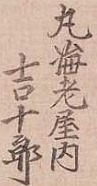 丸海老屋内
吉十郎